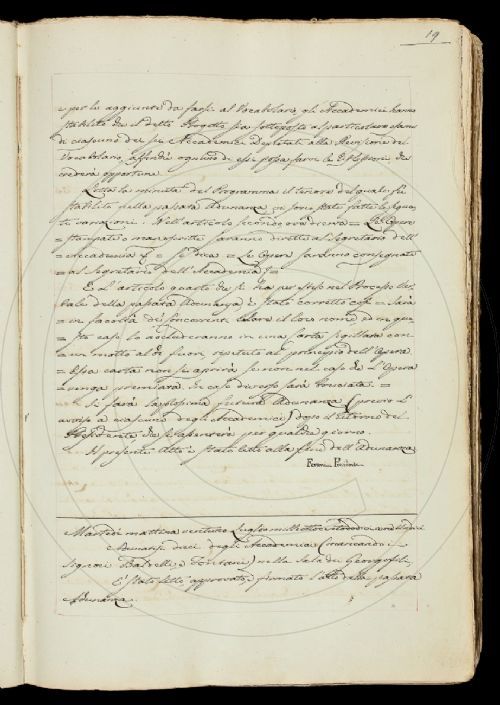 19
e per le aggiunte da farsi al Vocabolario gli Accademici hanno
stabilito che il detto Progetto sia sottoposto al particolare esame
di ciascuno dei sei Accademici deputati alla Revisione del
Vocabolario, affinchè ognuno di essi possa farvi le riflessioni che
crederà opportune.
Letta la minuta del Programma il tenore del quale fù
stabilito nella passata Adunanza vi sono state fatte le seguen-
ti variazioni. Nell'articolo secondo ove diceva = Le Opere
= stampate e manoscritte saranno dirette al Segretario dell'
= Accademia & = si dica = Le Opere saranno consegnate
= al Segretario dell'Accademia & =
E l'articolo quarto che si ha per esteso nel Processo ver-
bale della passata Adunanza, è stato corretto così = Sarà
= in facoltà dei Concorrenti celare il loro nome, ed in que-
= sto caso lo acchiuderanno in una carta sigillata con
= un motto al di fuori, ripetuto al principio dell'Opera.
= Essa carta non si aprirà se non nel caso che l'Opera
= venga premiata. In caso diverso sarà bruciata. =
Si farà la prossima futura Adunanza (previo l'
avviso a ciascuno degli Accademici) dopo il ritorno del
Presidente che si assenterà per qualche giorno.
Il presente Atto è stato letto alla fine dell'Adunanza
Ferroni Presidente
Martedì mattina ventuno Luglio mille
Adunatisi dieci degli Accademici (mancando i
Signori Baldelli e Fontani) nella Sala dei Georgofili,
E' stato letto approvato, e firmato l'atto della passata
Adunanza.